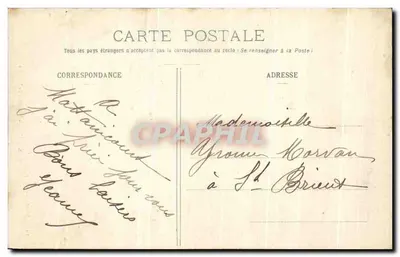 CARTE POSTALE
Tous les pays étrangers n'acceptent pas la correspondance au recto (Se renseigner à la Poste)
CORRESPONDANCE
ADRESSE
A
Mattaincourt
j'ai prié pour vous
Bons baisers
Jeanne
CPARAMA
Mademoiselle
Morvan
à St Brieuc